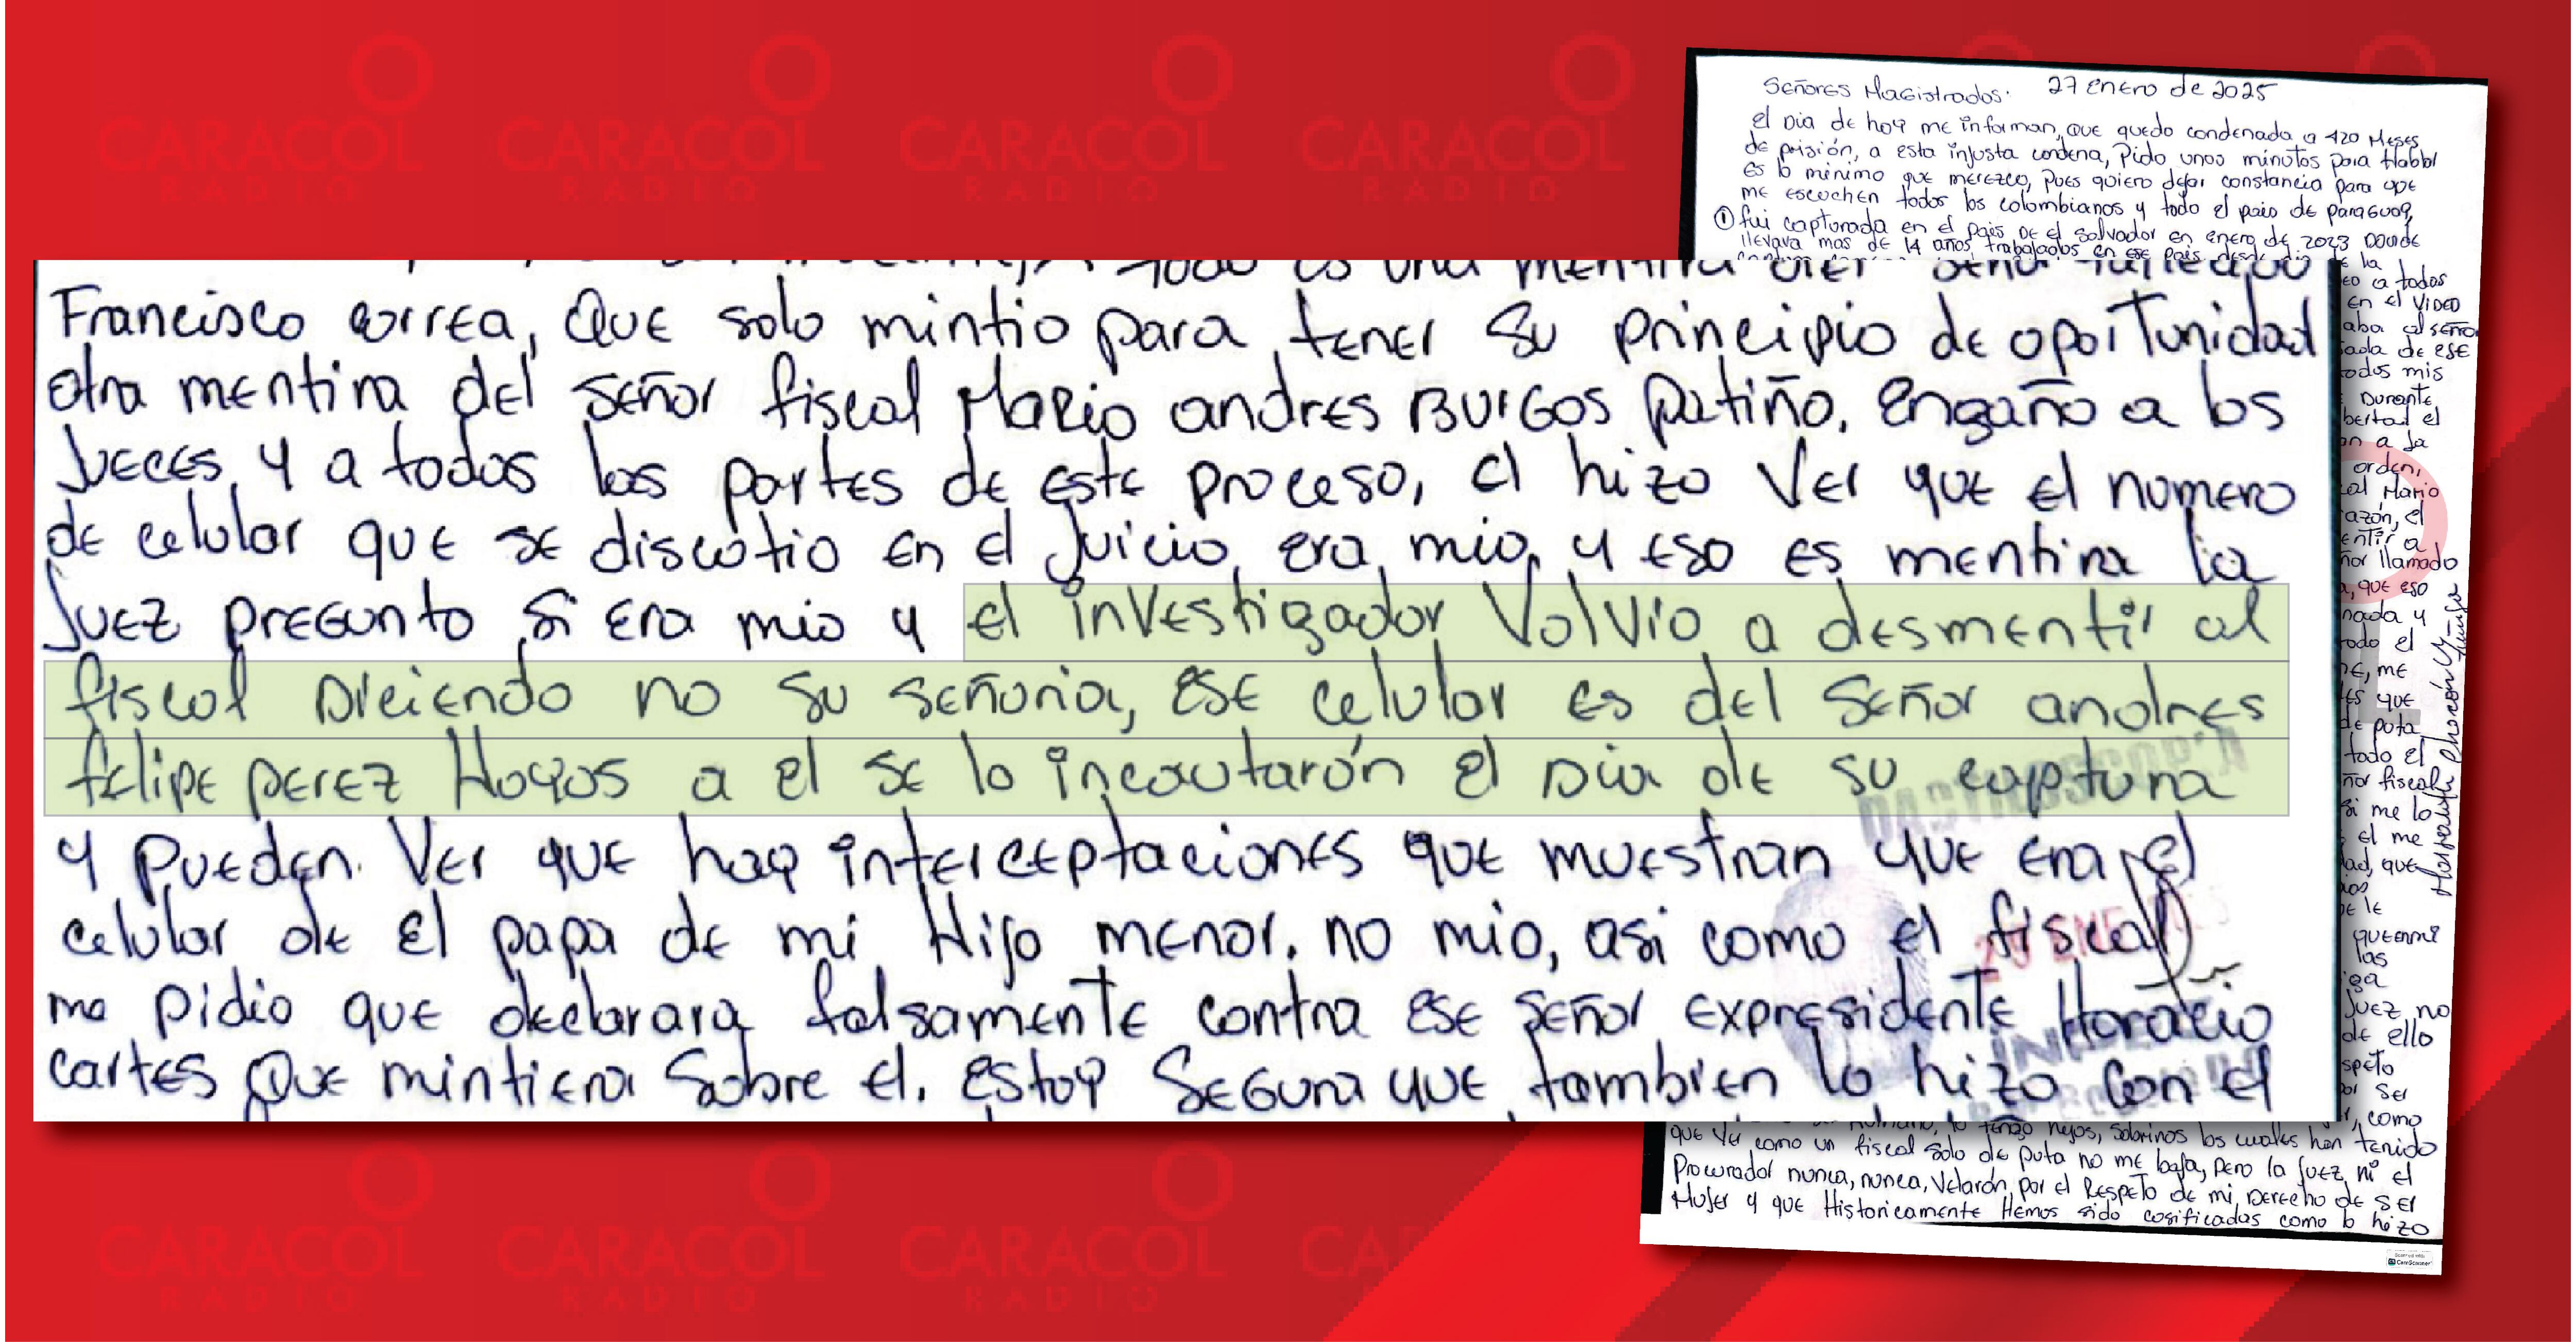 CARACOL CARACOL CARACOL CARACOL
RADIO RADIO RADIO RADIO
Señores Magistrados. 27 enero de 2025
el Dia de hoy me informan, que quedo condenada a 420 Meses
de prisión, a esta injusta condena, Pido unos minutos para Hablar
es lo minimo que merezco, pues quiero dejar constancia para que
me escuchen todos los colombianos y todo el pais de paraguay,
① fui capturada en el pais de el Salvador en enero de 2023 Donde
llevava mas de 14 años trabajados en ese pais desde
todo es una mentira
Francisco correa, Que solo mintio para tener su principio de oportunidad
otra mentira del señor fiscal Mario andres Burgos patiño. Engaño a los
Jueces, y a todos las partes de este proceso, el hizo ver que el numero
de celular que se discutio en el Juicio, era mio, y eso es mentira la
Juez pregunto si era mio y el investigador Volvio a desmentir al
fiscal Diciendo no su señoria, ese celular es del señor andres
felipe perez Hoyos a el se lo incautarón el Dia de su captura
y pueden ver que hay interceptaciones que muestran que era el
celular de el papa de mi Hijo menor. no mio, asi como el fiscal
me pidio que declarara falsamente contra ese señor expresidente Horacio
cartes Que mintiera sobre el. estoy segura que tambien lo hizo con el
la
a todos
en el VIDEO
aba al señor
ada de ese
odos mis
Durante
bertad el
on a la
orden,
cal Mario
azón, el
entir a
ñor llamado
, que eso
nada y
todo el
me, me
es que
de puta
todo el
ñor fiscal
si me lo
el me
dad, que
de le
las
Juez, no
de ello
speto
por ser
, como
tengo hijos, sobrinos los cuales han tenido
que ver como un fiscal solo de puta no me baja, pero la Juez ni el
Procurador nunca, nunca, velarón por el Respeto de mi Derecho de ser
Mujer y que Historicamente Hemos sido cosificadas como lo hizo
CamScanner
CARACOL CARACOL CARACOL CA
RADIO RADIO RADIO